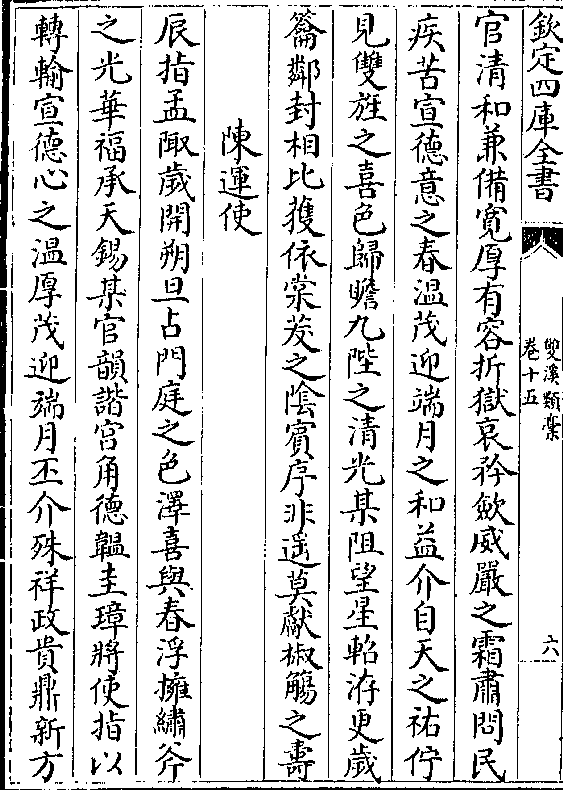 欽定四庫全書
雙溪類槀
卷十五
六
官清和兼備寛厚有容折獄哀矜歛威嚴之霜肅問民
疾苦宣德意之春温茂迎端月之和益介自天之祐佇
見雙旌之喜色歸瞻九陛之清光某阻望星軺洊更歲
籥鄰封相比獲依棠茇之隂賓序非遥莫獻椒觴之壽
陳運使
辰指孟陬歲開朔旦占門庭之色澤喜與春浮擁繡斧
之光華福承天錫某官韻諧宫角德韞圭璋將使指以
轉輸宣德心之温厚茂迎端月丕介殊祥政貴鼎新方